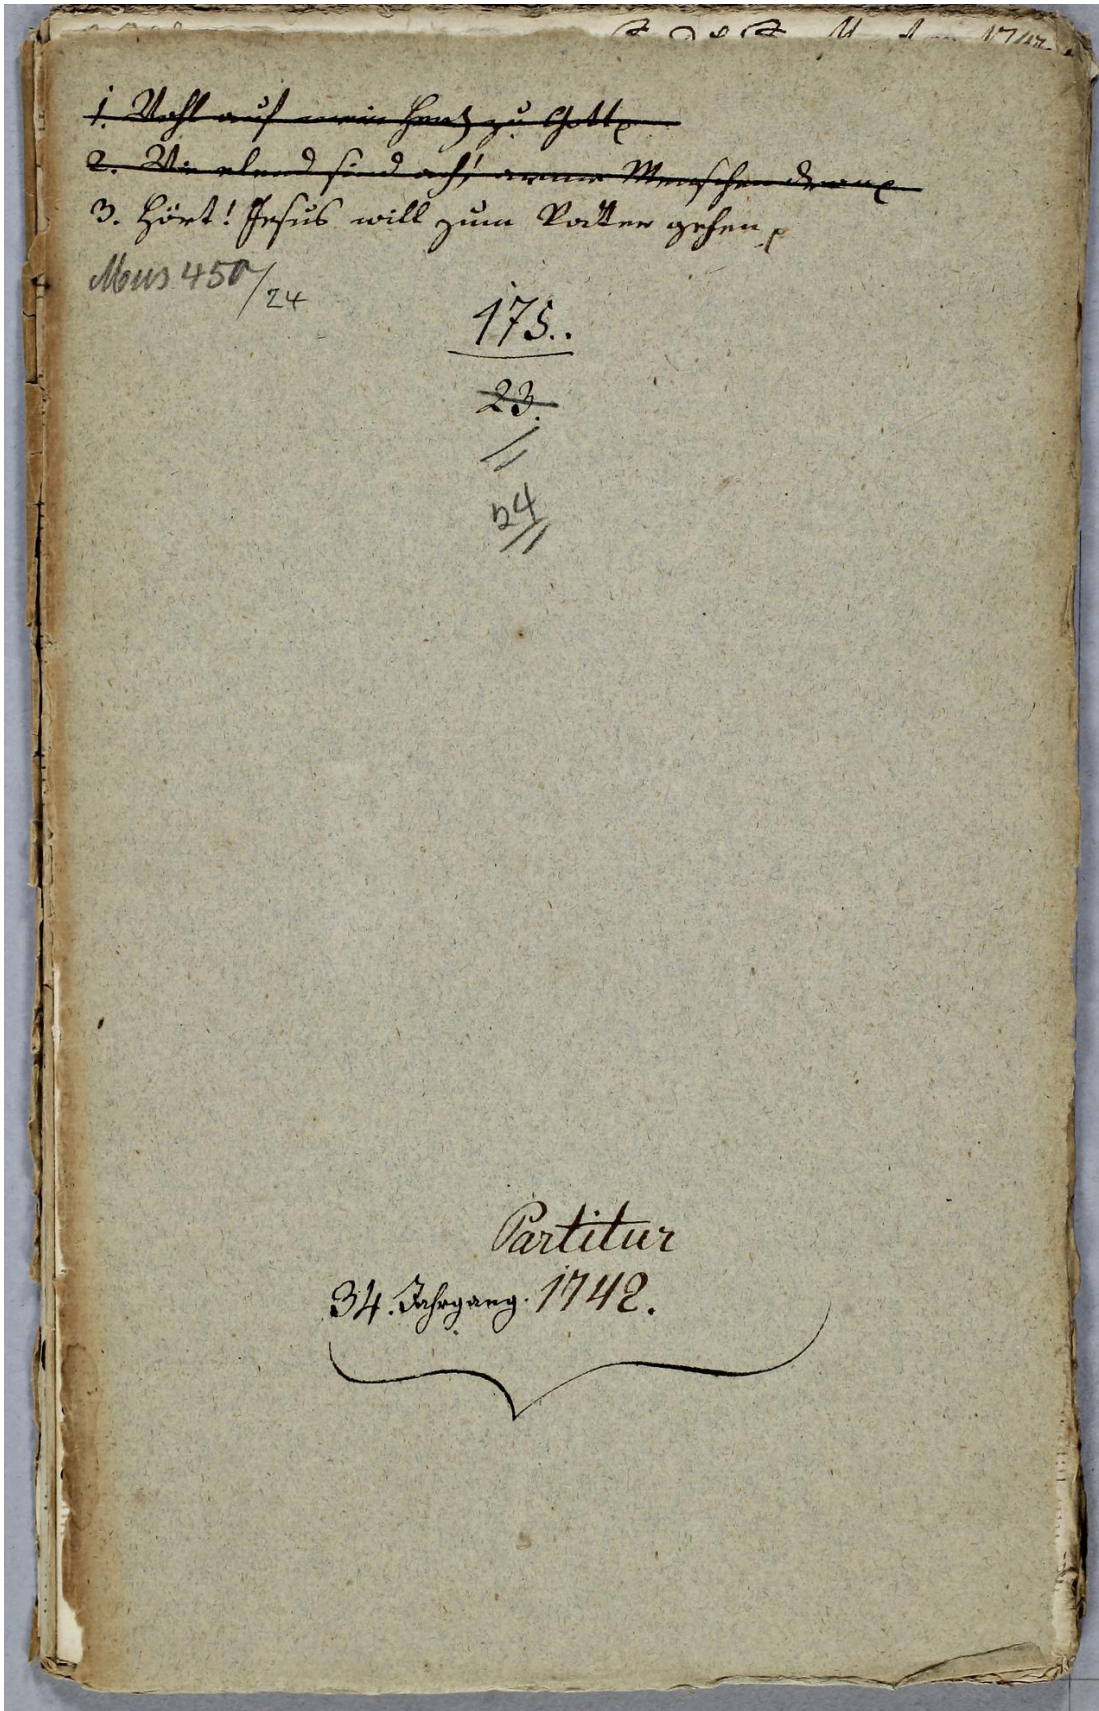 1. Wohl auf mein Hertz zu Gott
2. Wie elend sind ach! arme Menschen dran
3. Hört! Jesus will zum Vatter gehen p
Mus 450/24
175..
23.
24
Partitur
34. Jahrgang. 1742.